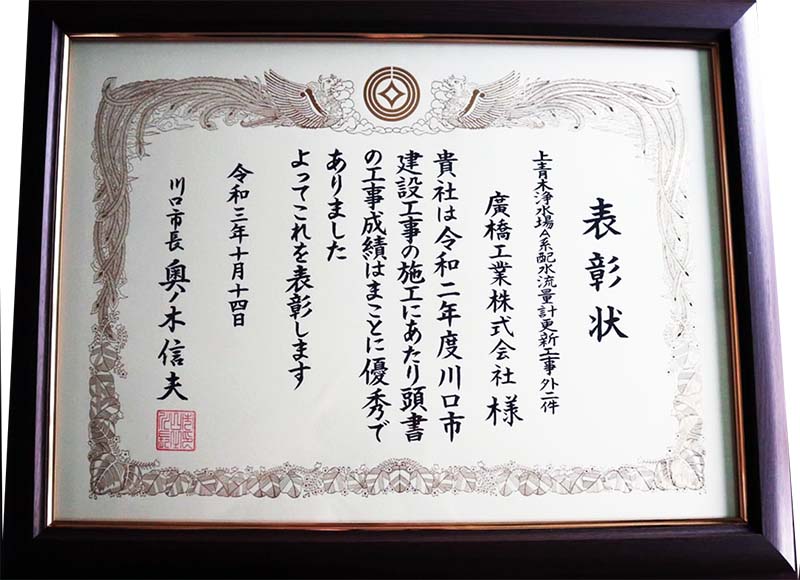 表彰状
上青木浄水場A系配水流量計更新工事外二件
廣橋工業株式会社 様
貴社は令和二年度川口市
建設工事の施工にあたり頭書
の工事成績はまことに優秀で
ありました
よってこれを表彰します
令和三年十月十四日
川口市長 奥ノ木信夫